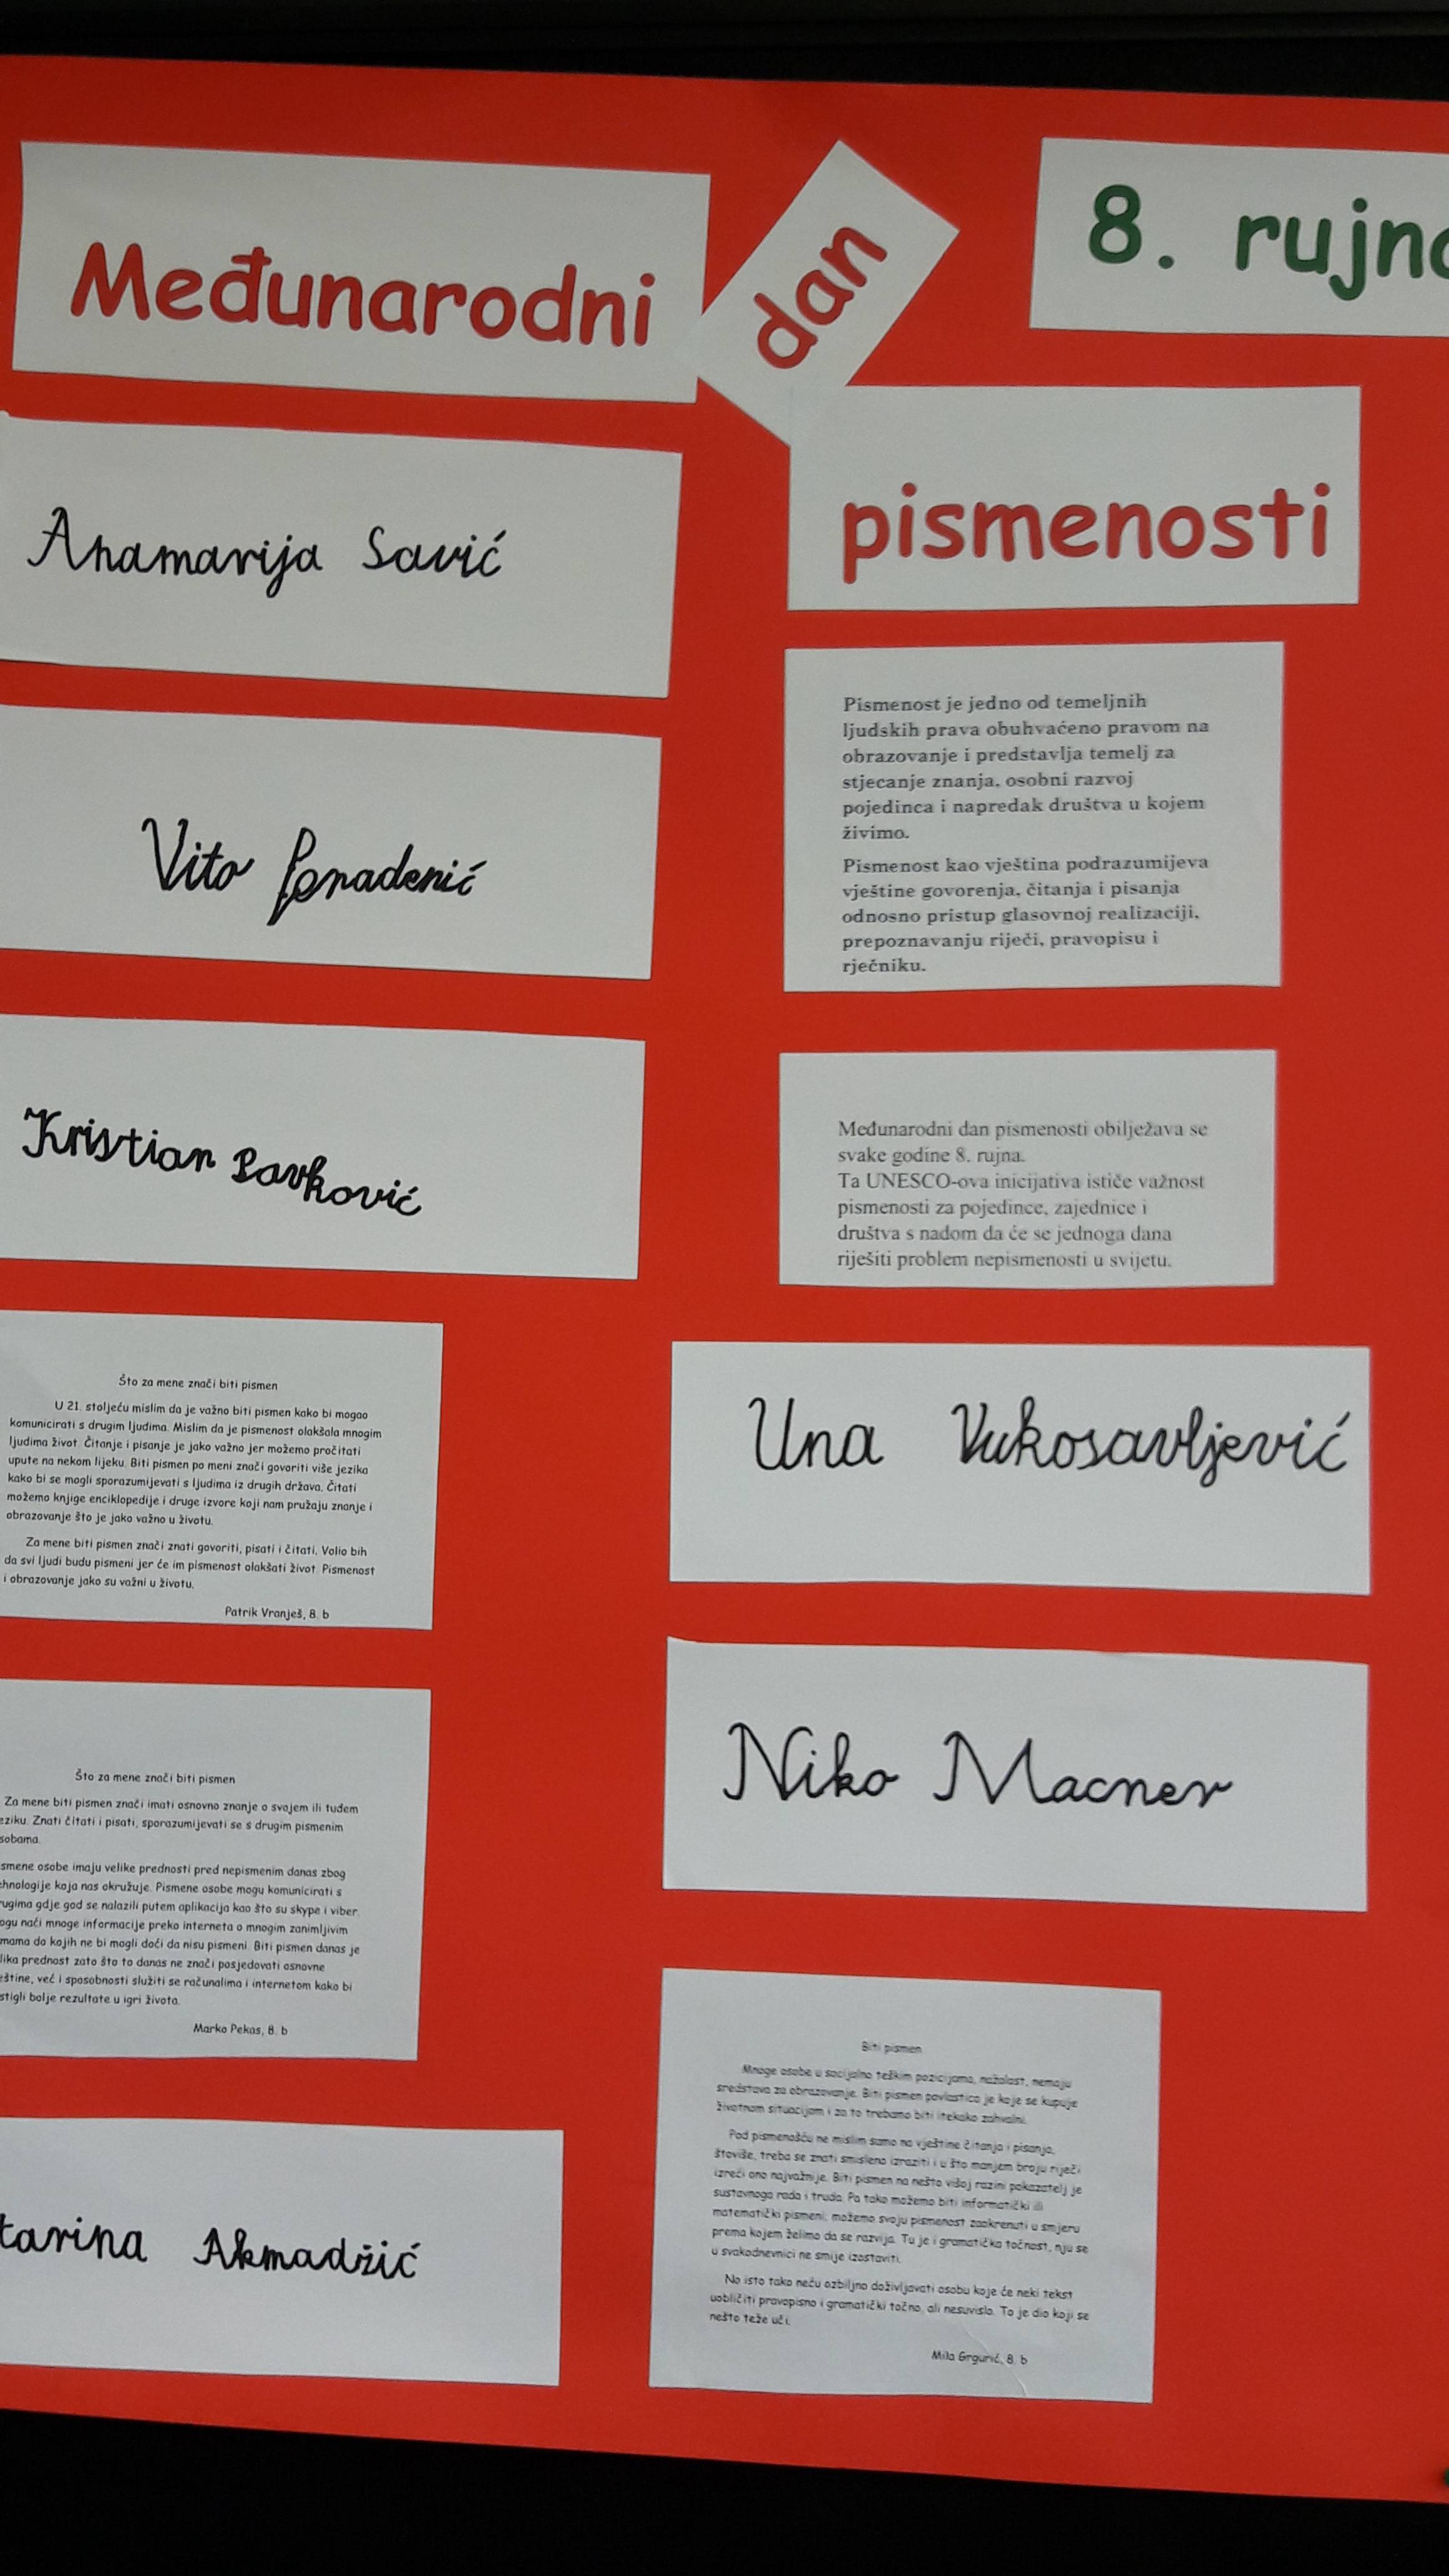 Međunarodni
dan
8. rujna
pismenosti
Anamarija Savić
Vito
Kristian Pavković
Što za mene znači biti pismen
U 21. stoljeću mislim da je važno biti pismen kako bi mogao
komunicirati s drugim ljudima. Mislim da je pismenost olakšala mnogim
ljudima život. Čitanje i pisanje je jako važno jer možemo pročitati
upute na nekom lijeku. Biti pismen po meni znači govoriti više jezika
kako bi se mogli sporazumijevati s ljudima iz drugih država. Čitati
možemo knjige enciklopedije i druge izvore koji nam pružaju znanje i
obrazovanje što je jako važno u životu.
Za mene biti pismen znači znati govoriti, pisati i čitati. Volio bih
da svi ljudi budu pismeni jer će im pismenost olakšati život. Pismenost
i obrazovanje jako su važni u životu.
Patrik Vranješ, 8. b
Što za mene znači biti pismen
Za mene biti pismen znači imati osnovno znanje o svojem ili tuđem
eziku. Znati čitati i pisati, sporazumijevati se s drugim pismenim
sobama.
smene osobe imaju velike prednosti pred nepismenim danas zbog
hnologije koja nas okružuje. Pismene osobe mogu komunicirati s
ugima gdje god se nalazili putem aplikacija kao što su skype i viber.
ogu naći mnoge informacije preko interneta o mnogim zanimljivim
mama do kojih ne bi mogli doći da nisu pismeni. Biti pismen danas je
lika prednost zato što to danas ne znači posjedovati osnovne
eštine, već i sposobnosti služiti se računalima i internetom kako bi
stigli bolje rezultate u igri života.
Marko Pekas, 8. b
tarina Akmadžić
Pismenost je jedno od temeljnih
ljudskih prava obuhvaćeno pravom na
obrazovanje i predstavlja temelj za
stjecanje znanja, osobni razvoj
pojedinca i napredak društva u kojem
živimo.
Pismenost kao vještina podrazumijeva
vještine govorenja, čitanja i pisanja
odnosno pristup glasovnoj realizaciji,
prepoznavanju riječi, pravopisu i
rječniku.
Međunarodni dan pismenosti obilježava se
svake godine 8. rujna.
Ta UNESCO-ova inicijativa ističe važnost
pismenosti za pojedince, zajednice i
društva s nadom da će se jednoga dana
riješiti problem nepismenosti u svijetu.
Una Vukosavljević
Niko Macner
Biti pismen
Mnoge osobe u socijalno teškim pozicijama, nažalost, nemaju
sredstava za obrazovanje. Biti pismen povlastica je koje se kupuje
životnom situacijom i za to trebamo biti itekako zahvalni.
Pod pismenošću ne mislim samo na vještine čitanja i pisanja,
štoviše, treba se znati smisleno izraziti i u što manjem broju riječi
izreći ono najvažnije. Biti pismen na nešto višoj razini pokazatelj je
sustavnoga rada i truda. Pa tako možemo biti informatički ili
matematički pismeni, možemo svoju pismenost zaokrenuti u smjeru
prema kojem želimo da se razvija. Tu je i gramatička točnost, nju se
u svakodnevnici ne smije izostaviti.
No isto tako neću ozbiljno doživljavati osobu koje će neki tekst
uobličiti pravopisno i gramatički točno, ali nesuvislo. To je dio koji se
nešto teže uči.
Mila Grgurić, 8. b